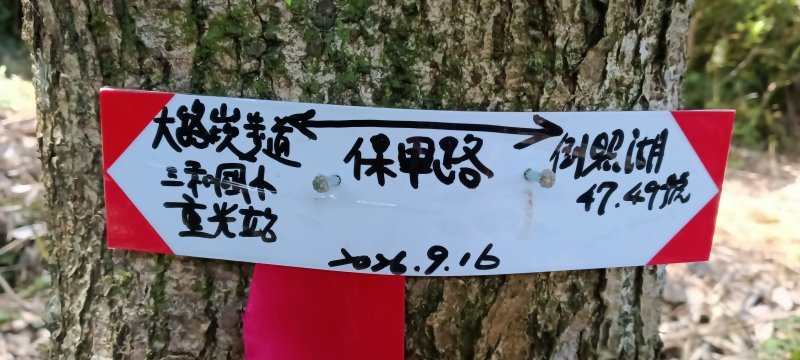 大路崁步道
三和國小
重光站
保甲路
倒照湖
47.49號
2026.9.16